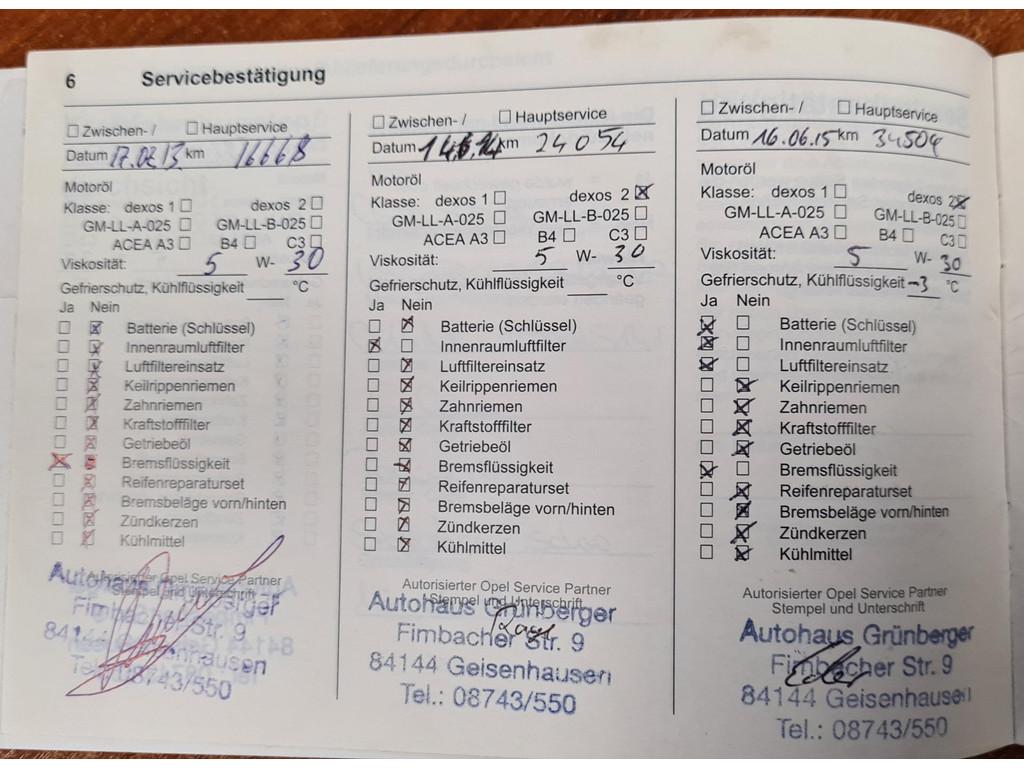 6 Servicebestätigung
☐ Zwischen- / ☐ Hauptservice
Datum 17.06.13 km 16668
Motoröl
Klasse: dexos 1 ☐ dexos 2 ☐
GM-LL-A-025 ☐ GM-LL-B-025 ☐
ACEA A3 ☐ B4 ☐ C3 ☐
Viskosität: 5 W- 30
Gefrierschutz, Kühlflüssigkeit °C
Ja Nein
☐ ☒ Batterie (Schlüssel)
☐ ☒ Innenraumluftfilter
☐ ☒ Luftfiltereinsatz
☐ ☒ Keilrippenriemen
☐ ☒ Zahnriemen
☐ ☒ Kraftstofffilter
☐ ☒ Getriebeöl
☒ ☒ Bremsflüssigkeit
☐ ☒ Reifenreparaturset
☐ ☒ Bremsbeläge vorn/hinten
☐ ☒ Zündkerzen
☐ ☒ Kühlmittel
Autorisierter Opel Service Partner
Stempel und Unterschrift
Autohaus Grünberger
Fimbacher Str. 9
84144 Geisenhausen
Tel.: 08743/550
☐ Zwischen- / ☐ Hauptservice
Datum km 24054
Motoröl
Klasse: dexos 1 ☐ dexos 2 ☒
GM-LL-A-025 ☐ GM-LL-B-025 ☐
ACEA A3 ☐ B4 ☐ C3 ☐
Viskosität: 5 W- 30
Gefrierschutz, Kühlflüssigkeit °C
Ja Nein
☐ ☒ Batterie (Schlüssel)
☒ ☐ Innenraumluftfilter
☐ ☒ Luftfiltereinsatz
☐ ☒ Keilrippenriemen
☐ ☒ Zahnriemen
☐ ☒ Kraftstofffilter
☐ ☒ Getriebeöl
☐ ☒ Bremsflüssigkeit
☐ ☒ Reifenreparaturset
☐ ☒ Bremsbeläge vorn/hinten
☐ ☒ Zündkerzen
☐ ☒ Kühlmittel
Autorisierter Opel Service Partner
Stempel und Unterschrift
Autohaus Grünberger
Fimbacher Str. 9
84144 Geisenhausen
Tel.: 08743/550
☐ Zwischen- / ☐ Hauptservice
Datum 16.06.15 km 34504
Motoröl
Klasse: dexos 1 ☐ dexos 2 ☒
GM-LL-A-025 ☐ GM-LL-B-025 ☐
ACEA A3 ☐ B4 ☐ C3 ☐
Viskosität: 5 W- 30
Gefrierschutz, Kühlflüssigkeit -3 °C
Ja Nein
☒ ☐ Batterie (Schlüssel)
☒ ☐ Innenraumluftfilter
☒ ☐ Luftfiltereinsatz
☐ ☒ Keilrippenriemen
☐ ☒ Zahnriemen
☐ ☒ Kraftstofffilter
☐ ☒ Getriebeöl
☒ ☐ Bremsflüssigkeit
☐ ☒ Reifenreparaturset
☐ ☒ Bremsbeläge vorn/hinten
☐ ☒ Zündkerzen
☐ ☒ Kühlmittel
Autorisierter Opel Service Partner
Stempel und Unterschrift
Autohaus Grünberger
Fimbacher Str. 9
84144 Geisenhausen
Tel.: 08743/550